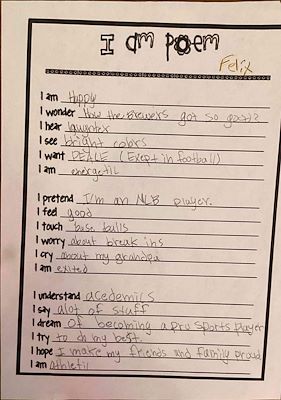 I am poem
Felix
I am Happy
I wonder How the Brewers got so good?
I hear laughter
I see bright colors
I want PEACE (Exept in football)
I am energetic
I pretend I'm an MLB player.
I feel good
I touch base balls
I worry about break ins
I cry about my grandpa
I am exited
I understand acedemics
I say alot of stuff
I dream of becoming a pro sports player
I try to do my best
I hope I make my friends and family proud
I am athletic